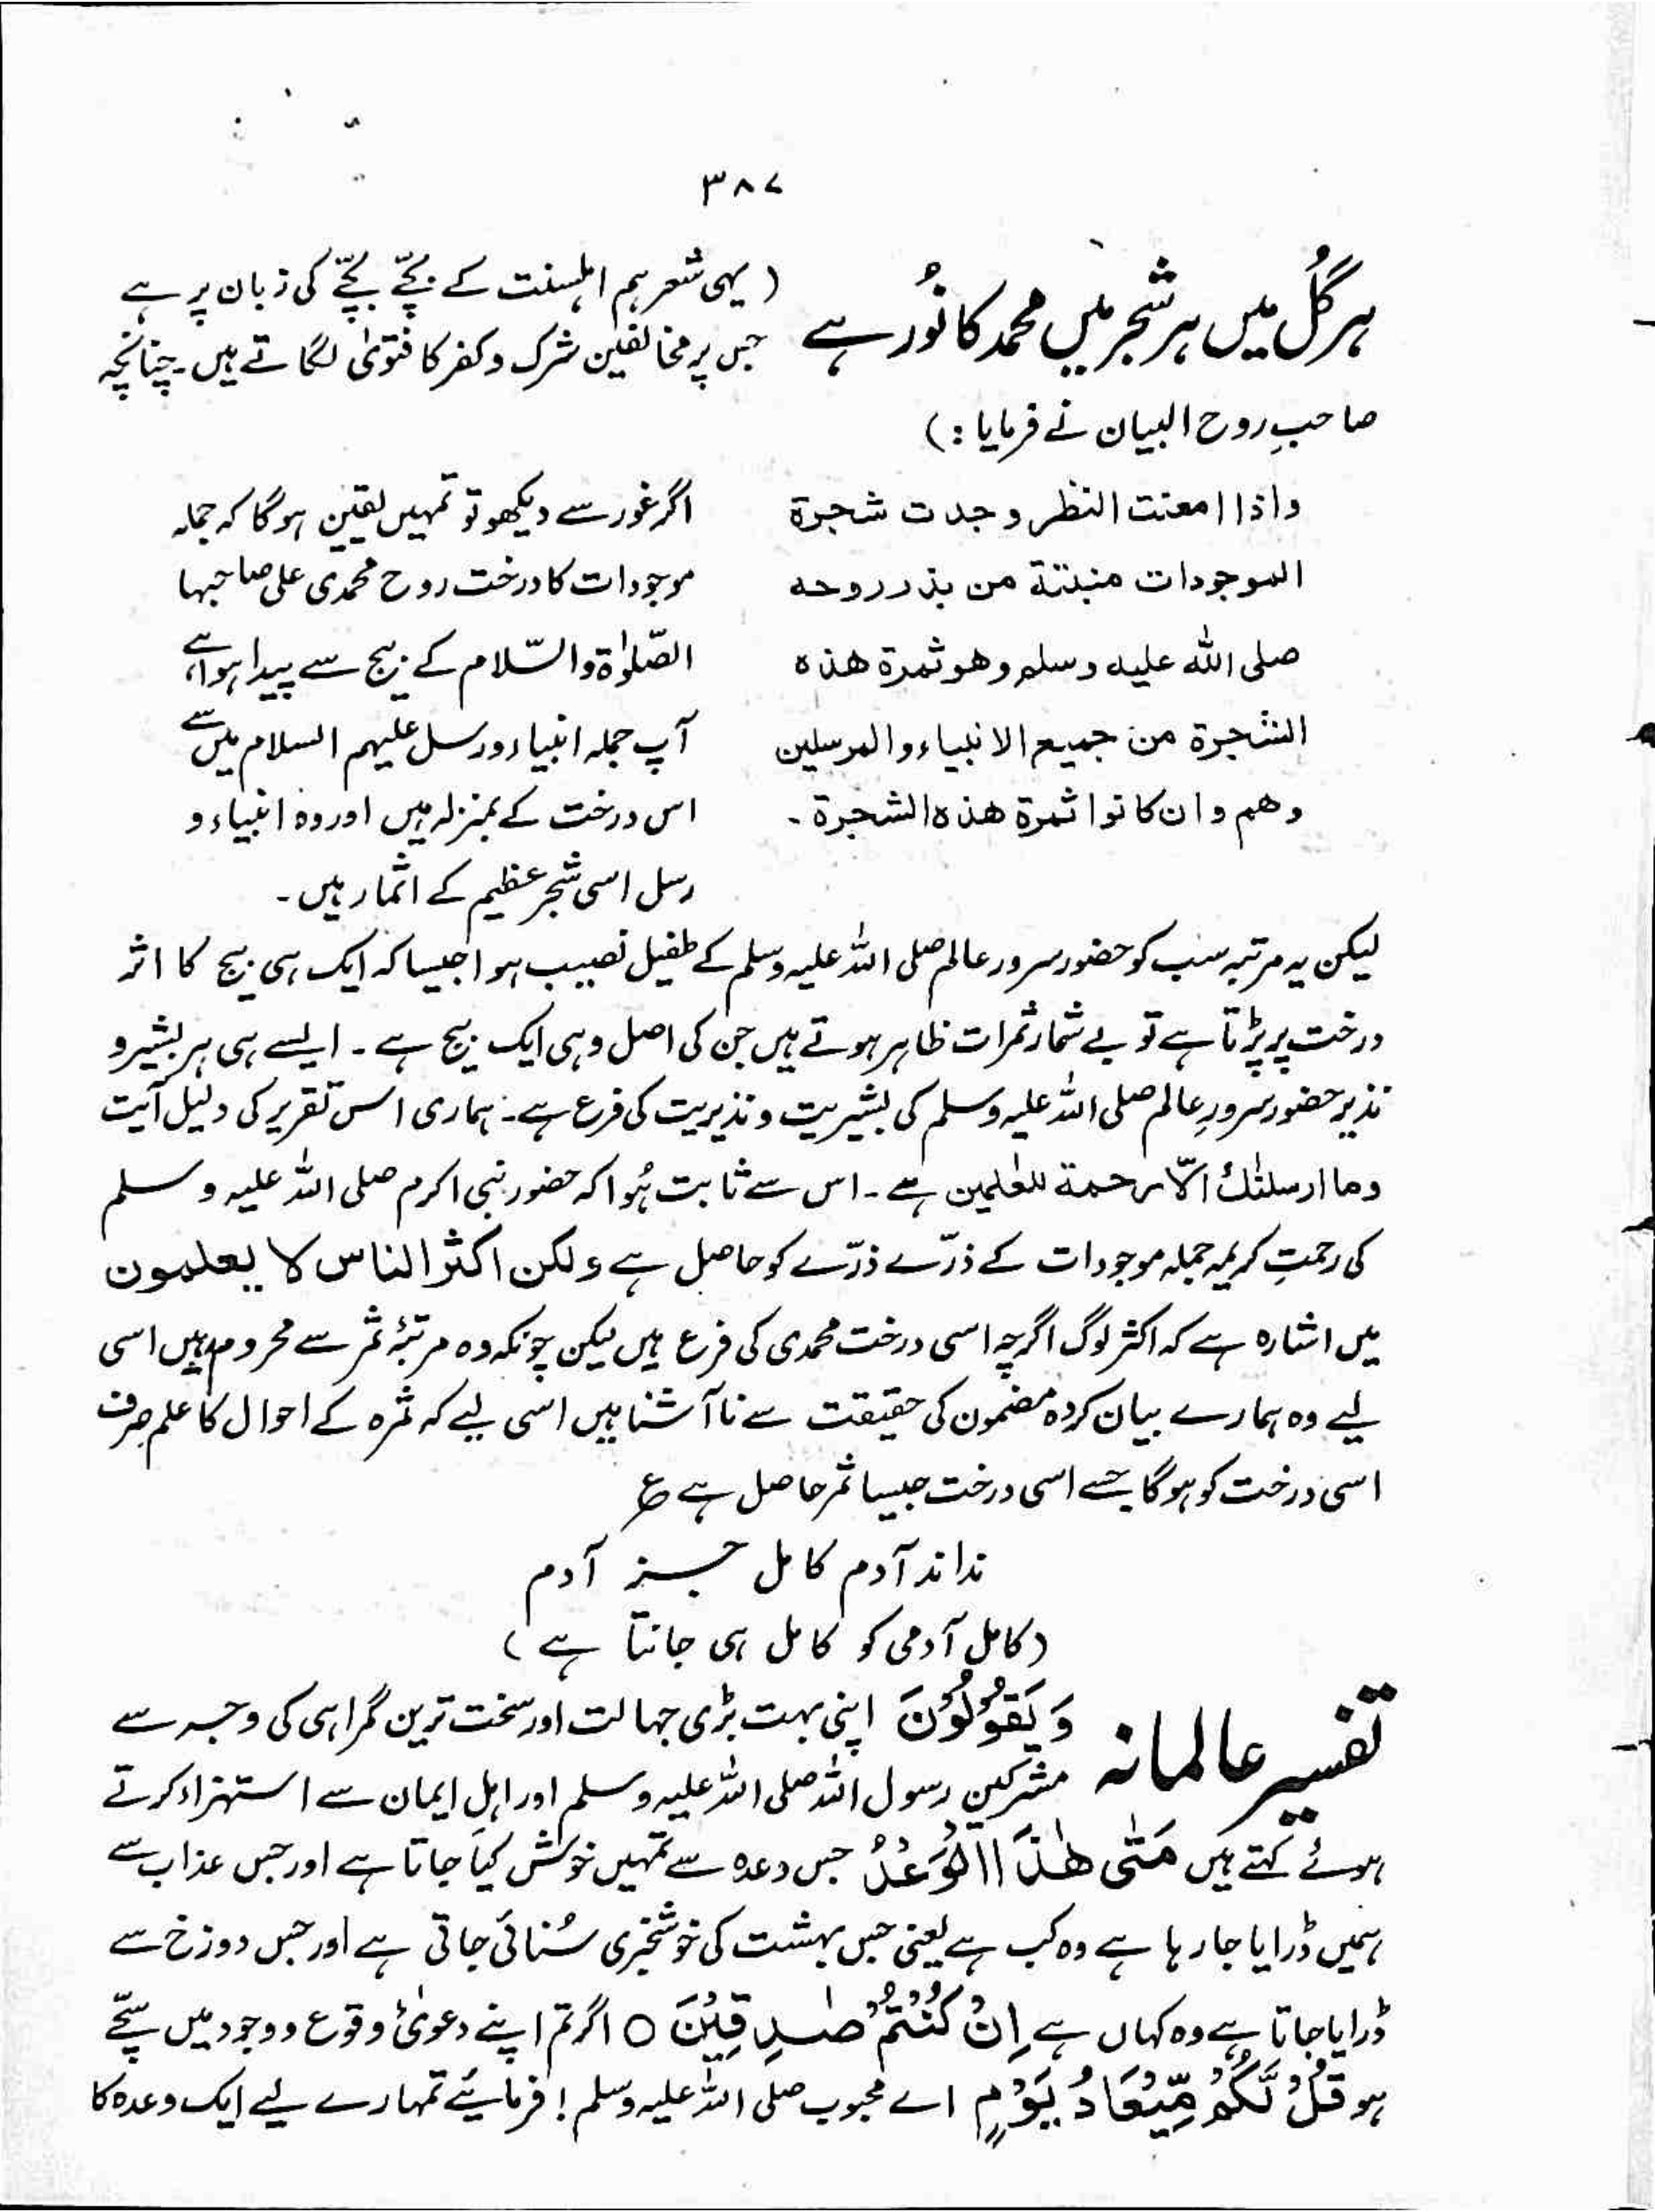 ۳۸۷
ہر گُل میں ہر شجر میں محمد کا نُور ہے
( یہی شعر ہم اہلسنت کے بچّے بچّے کی زبان پر ہے
جس پر مخالفین شرک و کفر کا فتویٰ لگاتے ہیں۔ چنانچہ
صاحبِ روح البیان نے فرمایا :)
واذا امعنت النظر وجدت شجرة
الموجودات منبتة من بذر روحه
صلی اللہ علیہ وسلم وھو ثمرة ھذہ
الشجرة من جمیع الانبیاء والمرسلین
وھم وان کانوا ثمرة ھذہ الشجرة ۔
اگر غور سے دیکھو تو تمہیں یقین ہوگا کہ جملہ
موجودات کا درخت روح محمدی علی صاحبہا
الصّلوٰۃ والسّلام کے بیج سے پیدا ہوا ہے،
آپ جملہ انبیاء و رسل علیہم السلام میں سے
اس درخت کے بمنزلہ ہیں اور وہ انبیاء و
رسل اسی شجر عظیم کے اثمار ہیں ۔
لیکن یہ مرتبہ سب کو حضور سرور عالم صلی اللہ علیہ وسلم کے طفیل نصیب ہوا جیسا کہ ایک ہی بیج کا اثر
درخت پر پڑتا ہے تو بے شمار ثمرات ظاہر ہوتے ہیں جن کی اصل وہی ایک بیج ہے ۔ ایسے ہی ہر بشیر و
نذیر حضور سرورِ عالم صلی اللہ علیہ وسلم کی بشیریت و نذیریت کی فرع ہے۔ ہماری اس تقریر کی دلیل آیت
وما ارسلنٰک الّا رحمة للعٰلمین ہے ۔ اس سے ثابت ہُوا کہ حضور نبی اکرم صلی اللہ علیہ وسلم
کی رحمتِ کریمہ جملہ موجودات کے ذرّے ذرّے کو حاصل ہے ولکن اکثر الناس لا یعلمون
میں اشارہ ہے کہ اکثر لوگ اگرچہ اسی درخت محمدی کی فرع ہیں لیکن چونکہ وہ مرتبۂ ثمر سے محروم ہیں اسی
لیے وہ ہمارے بیان کردہ مضمون کی حقیقت سے ناآشنا ہیں اسی لیے کہ ثمرہ کے احوال کا علم صرف
اسی درخت کو ہوگا جسے اسی درخت جیسا ثمر حاصل ہے ع
نداند آدم کامل جز آدم
(کامل آدمی کو کامل ہی جانتا ہے)
تفسیر عالمانہ
وَیَقُوْلُوْنَ اپنی بہت بڑی جہالت اور سخت ترین گمراہی کی وجہ سے
مشرکین رسول اللہ صلی اللہ علیہ وسلم اور اہلِ ایمان سے استہزاء کرتے
ہوئے کہتے ہیں مَتٰی ھٰذَا الْوَعْدُ جس وعدہ سے تمہیں خوش کیا جاتا ہے اور جس عذاب سے
ہمیں ڈرایا جا رہا ہے وہ کب ہے یعنی جس بہشت کی خوشخبری سُنائی جاتی ہے اور جس دوزخ سے
ڈرایا جاتا ہے وہ کہاں ہے اِنْ کُنْتُمْ صٰدِقِیْنَ ○ اگر تم اپنے دعویٰٔ وقوع و وجود میں سچّے
ہو قُلْ لَّکُمْ مِّیْعَادُ یَوْمٍ اے محبوب صلی اللہ علیہ وسلم ! فرمائیے تمہارے لیے ایک وعدہ کا